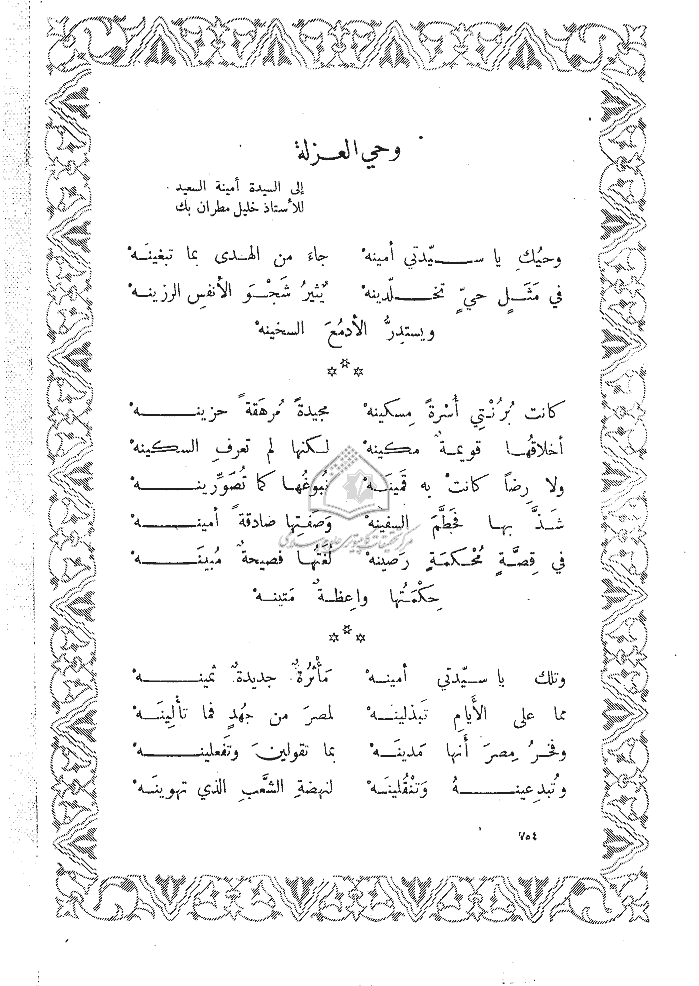 وحي العزلة
إلى السيدة أمينة السعيد
للأستاذ خليل مطران بك
وحيُكِ يا سيّدتي أمينهْ جاءَ من الهدى بما تبغينَهْ
في مَثَلٍ حيٍّ تخلّدينهْ يُثيرُ شَجْوَ الأنفسِ الرزينهْ
ويستدِرُّ الأدمُعَ السخينهْ
كانت بُرُنْتِي أُسْرةً مِسكينهْ مجيدةً مُرهَقةً حزينهْ
أخلاقُها قويمةٌ مكينهْ لكنها لم تعرفِ السكينهْ
ولا رِضاً كانتْ به قَمينَهْ نُبوغُها كما تُصَوِّرينهْ
شَذَّ بها فحَطَّمَ السفينهْ وَصفتِها صادقةً أمينهْ
في قِصَّةٍ مُحْكمَةٍ رَصينهْ لُغَتُها فصيحةٌ مُبينَهْ
حِكْمَتُها واعِظةٌ مَتينهْ
وتلك يا سيّدتي أمينهْ مَأْثُرةٌ جديدةٌ ثمينهْ
مما على الأيامِ تَبذلينَهْ لمصرَ من جُهدٍ فما تألِينَهْ
وفخرُ مِصرَ أنها مَدينَهْ بما تقولين وتَفعلينهْ
وتُبدعينهُ وَتنْقُلينَهْ لنهضةِ الشَّعبِ الذي تهوينَهْ
٧٥٤